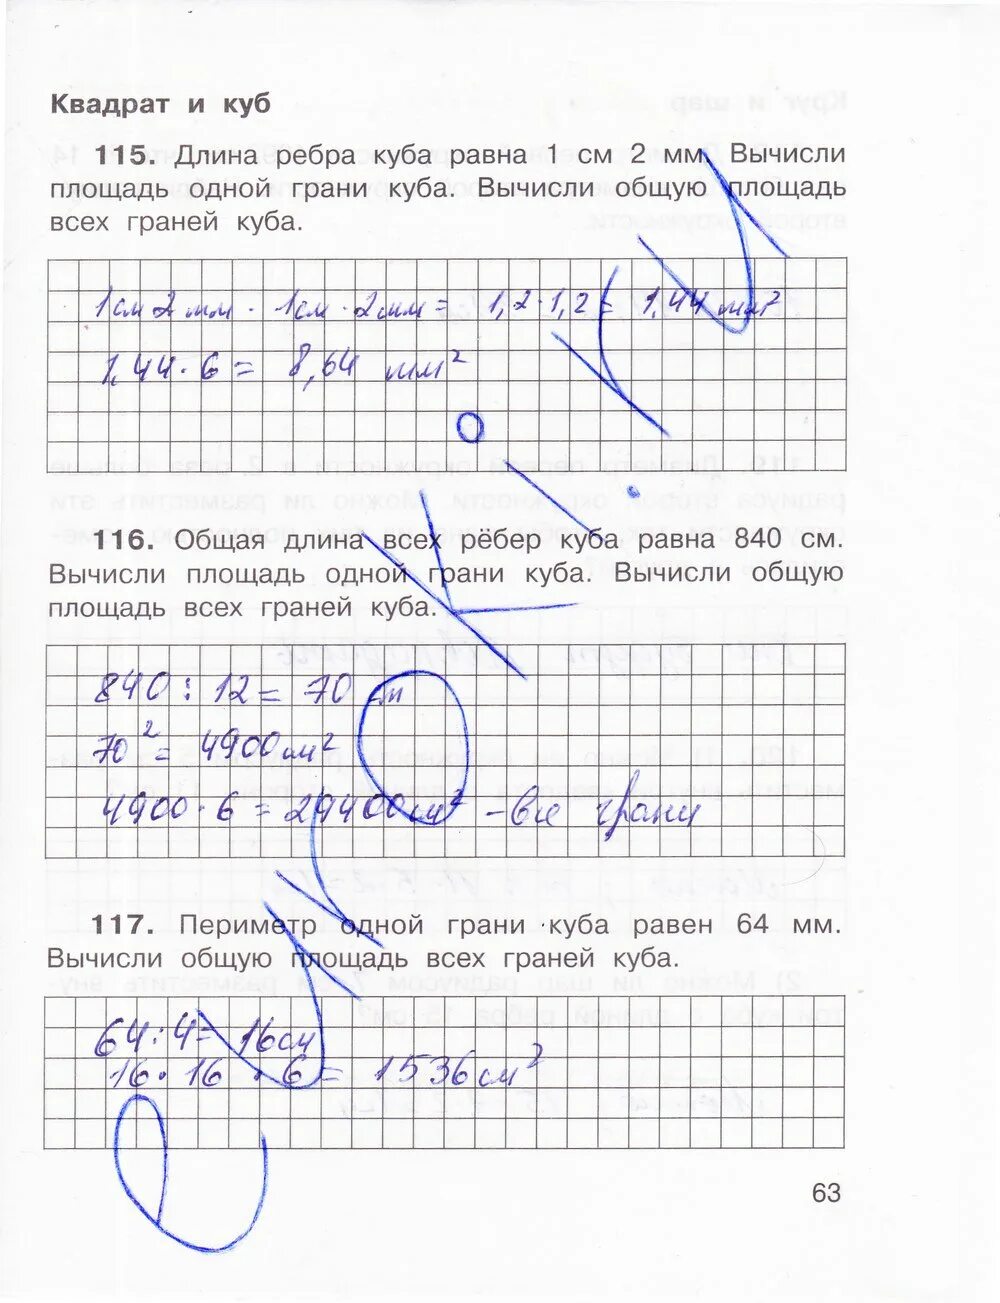 Квадрат и куб
115. Длина ребра куба равна 1 см 2 мм. Вычисли
площадь одной грани куба. Вычисли общую площадь
всех граней куба.
1см 2мм · 1см · 2мм = 1,2 · 1,2 = 1,44 мм²
1,44 · 6 = 8,64 мм²
116. Общая длина всех рёбер куба равна 840 см.
Вычисли площадь одной грани куба. Вычисли общую
площадь всех граней куба.
840 : 12 = 70 см
70² = 4900 см²
4900 · 6 = 29400 см² - все грани
117. Периметр одной грани куба равен 64 мм.
Вычисли общую площадь всех граней куба.
64 : 4 = 16 см
16 · 16 · 6 = 1536 см²
63